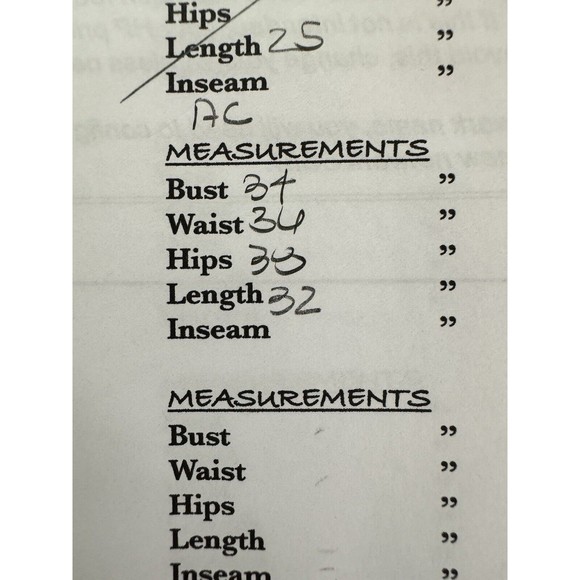 Hips ”
Length 25 ”
Inseam ”
AC
MEASUREMENTS
Bust 34 ”
Waist 34 ”
Hips 38 ”
Length 32 ”
Inseam ”
MEASUREMENTS
Bust ”
Waist ”
Hips ”
Length ”
Inseam ”